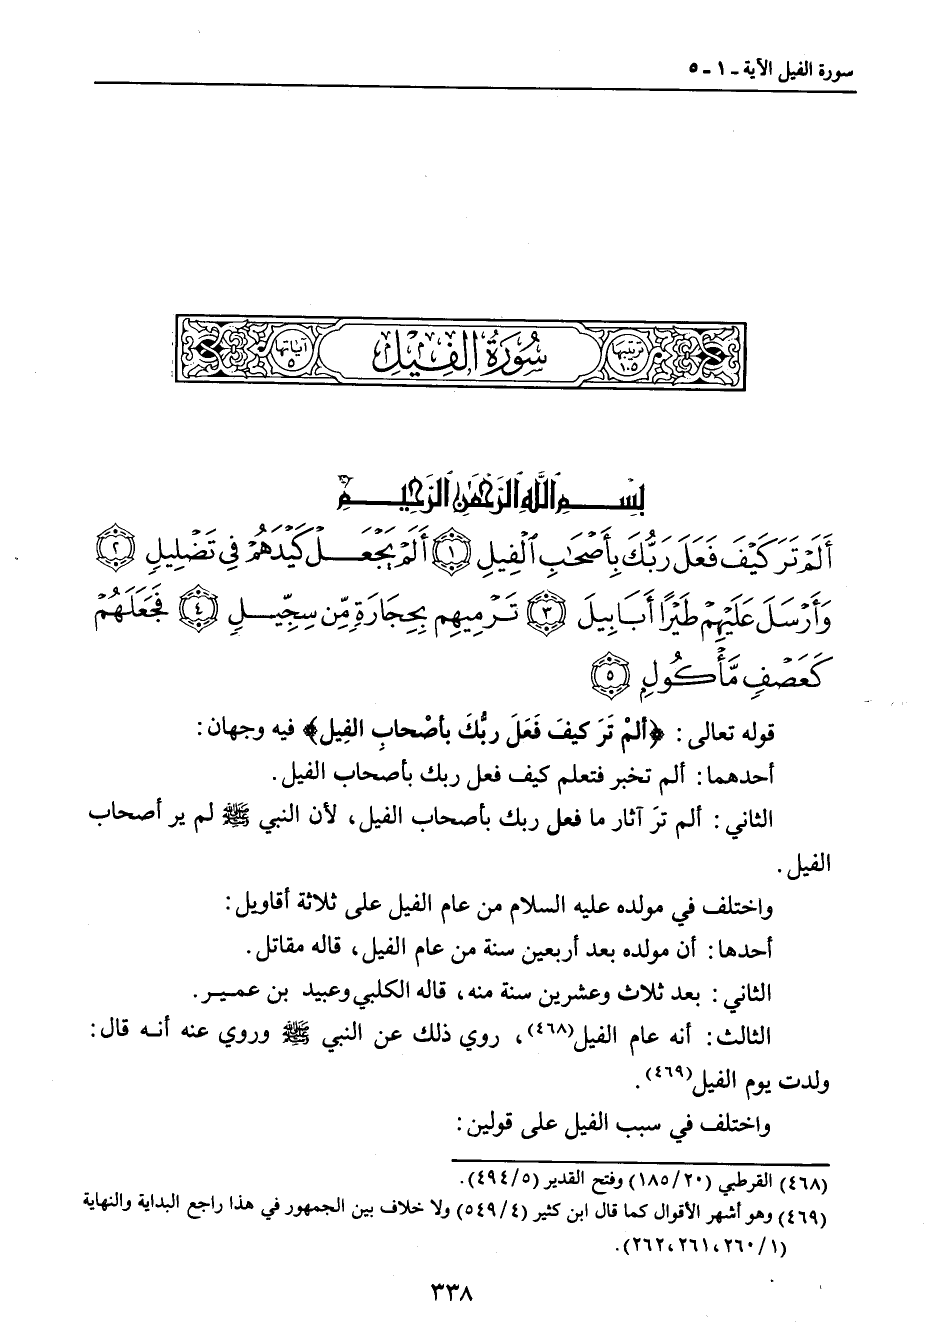 سورة الفيل الآية ـ ١ ـ ٥
مرتبتها ١٠٥
سُورَةُ الفِيلِ
آياتها ٥
بِسْمِ ٱللَّهِ ٱلرَّحْمَٰنِ ٱلرَّحِيمِ
أَلَمْ تَرَ كَيْفَ فَعَلَ رَبُّكَ بِأَصْحَٰبِ ٱلْفِيلِ ﴿١﴾ أَلَمْ يَجْعَلْ كَيْدَهُمْ فِي تَضْلِيلٍ ﴿٢﴾
وَأَرْسَلَ عَلَيْهِمْ طَيْرًا أَبَابِيلَ ﴿٣﴾ تَرْمِيهِم بِحِجَارَةٍ مِّن سِجِّيلٍ ﴿٤﴾ فَجَعَلَهُمْ
كَعَصْفٍ مَّأْكُولٍ ﴿٥﴾
قوله تعالى: ﴿ألمْ تَرَ كيفَ فَعَلَ ربُّكَ بأصْحابِ الفِيل﴾ فيه وجهان:
أحدهما: ألم تخبر فتعلم كيف فعل ربك بأصحاب الفيل.
الثاني: ألم ترَ آثار ما فعل ربك بأصحاب الفيل، لأن النبي ﷺ لم ير أصحاب
الفيل.
واختلف في مولده عليه السلام من عام الفيل على ثلاثة أقاويل:
أحدها: أن مولده بعد أربعين سنة من عام الفيل، قاله مقاتل.
الثاني: بعد ثلاث وعشرين سنة منه، قاله الكلبي وعبيد بن عمير.
الثالث: أنه عام الفيل(٤٦٨)، روي ذلك عن النبي ﷺ وروي عنه أنه قال:
ولدت يوم الفيل(٤٦٩).
واختلف في سبب الفيل على قولين:
(٤٦٨) القرطبي (٢٠/ ١٨٥) وفتح القدير (٥/ ٤٩٤).
(٤٦٩) وهو أشهر الأقوال كما قال ابن كثير (٤/ ٥٤٩) ولا خلاف بين الجمهور في هذا راجع البداية والنهاية
(١/ ٢٦٠، ٢٦١، ٢٦٢).
٣٣٨